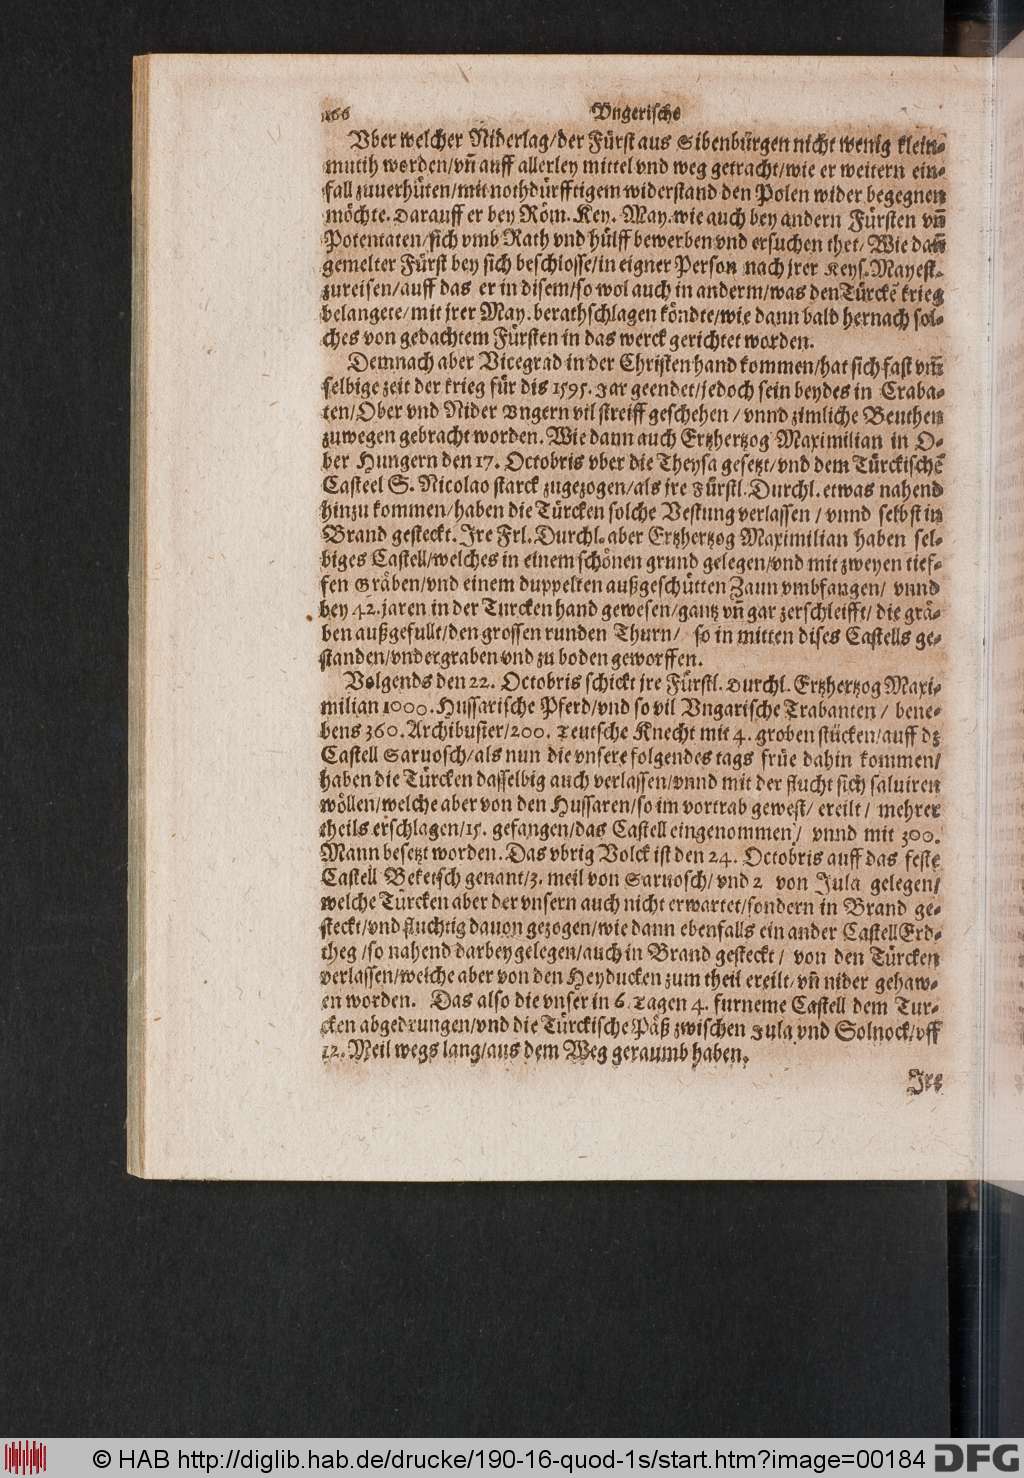 166 Vngerische
Vber welcher Niderlag/der Fürst aus Sibenbürgen nicht wenig klein-
mutih worden/vñ auff allerley mittel vnd weg getracht/wie er weitern ein-
fall zuuerhüten/mit nothdürfftigem widerstand den Polen wider begegnen
möchte. Darauff er bey Röm. Key. May. wie auch bey andern Fürsten vñ
Potentaten/sich vmb Rath vnd hülff bewerben vnd ersuchen thet/ Wie dañ
gemelter Fürst bey sich beschlosse/in eigner Person nach jrer Keys. Mayest.
zureisen/auff das er in disem/so wol auch in anderm/was den Türckẽ krieg
belangete/mit jrer May. berathschlagen köndte/wie dann bald hernach sol-
ches von gedachtem Fürsten in das werck gerichtet worden.
Demnach aber Vicegrad in der Christen hand kommen/hat sich fast vm̃
selbige zeit der krieg für dis 1595. Jar geendet/jedoch sein beydes in Craba-
ten/Ober vnd Nider Vngern vil streiff geschehen / vnnd zimliche Beuthen
zuwegen gebracht worden. Wie dann auch Ertzhertzog Maximilian in O-
ber Hungern den 17. Octobris vber die Theysa gesetzt/vnd dem Türckischẽ
Casteel S. Nicolao starck zugezogen/als jre Fürstl. Durchl. etwas nahend
hinzu kommen/haben die Türcken solche Vestung verlassen / vnnd selbst in
Brand gesteckt. Jre Frl. Durchl. aber Ertzhertzog Maximilian haben sel-
biges Castell/welches in einem schönen grund gelegen/vnd mit zweyen tief-
fen Gräben/vnd einem duppelten außgeschütten Zaun vmbfangen/ vnnd
bey 42. jaren in der Turcken hand gewesen/gantz vñ gar zerschleifft/ die grä-
ben außgefullt/den grossen runden Thurn/ so in mitten dises Castells ge-
standen/vndergraben vnd zu boden geworffen.
Volgends den 22. Octobris schickt jre Fürstl. Durchl. Ertzhertzog Maxi-
milian 1000. Hussarische Pferd/vnd so vil Vngarische Trabanten / bene-
bens 360. Archibusier/200. Teutsche Knecht mit 4. groben stücken/auff dz
Castell Saruosch/als nun die vnsere folgendes tags früe dahin kommen/
haben die Türcken dasselbig auch verlassen/vnnd mit der flucht sich saluiren
wöllen/welche aber von den Hussaren/so im vortrab gewest/ ereilt / mehrer
theils erschlagen/15. gefangen/das Castell eingenommen / vnnd mit 300.
Mann besetzt worden. Das vbrig Volck ist den 24. Octobris auff das feste
Castell Beketsch genant/3. meil von Saruosch/ vnd 2 von Jula gelegen/
welche Türcken aber der vnsern auch nicht erwartet/sondern in Brand ge-
steckt/vnd fluchtig dauon gezogen/wie dann ebenfalls ein ander Castell Erd-
theg /so nahend darbey gelegen/auch in Brand gesteckt / von den Türcken
verlassen/welche aber von den Heyducken zum theil ereilt/ vñ nider gehaw-
en worden. Das also die vnser in 6. Tagen 4. furneme Castell dem Tur-
cken abgedrungen/vnd die Türckische Päß zwischen Jula vnd Solnock/vff
12. Meil wegs lang/aus dem Weg geraumb haben.
Jre
© HAB http://diglib.hab.de/drucke/190-16-quod-1s/start.htm?image=00184
DFG